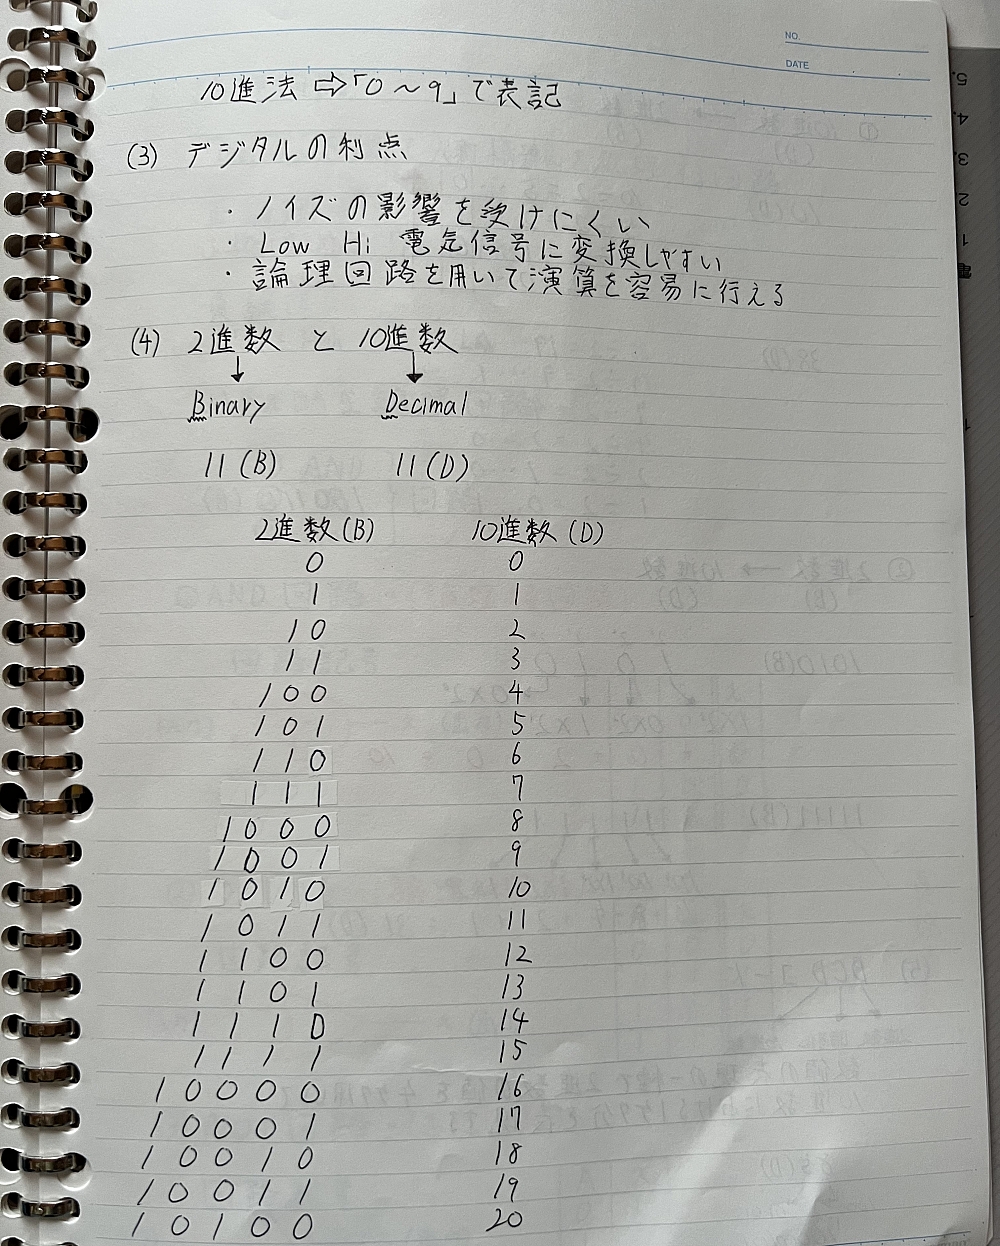 NO.
DATE
10進法⇨「0〜9」で表記
(3) デジタルの利点
・ノイズの影響を受けにくい
・Low Hi 電気信号に変換しやすい
・論理回路を用いて演算を容易に行える
(4) 2進数 と 10進数
↓ ↓
Binary Decimal
11(B) 11(D)
2進数(B) 10進数(D)
0 0
1 1
10 2
11 3
100 4
101 5
110 6
111 7
1000 8
1001 9
1010 10
1011 11
1100 12
1101 13
1110 14
1111 15
10000 16
10001 17
10010 18
10011 19
10100 20